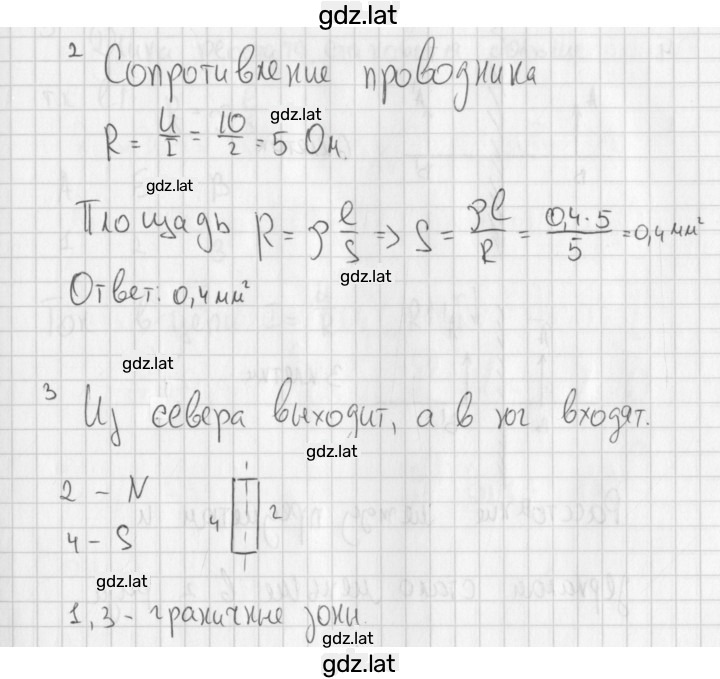 gdz.lat
2 Сопротивление проводника
gdz.lat
R = U/I = 10/2 = 5 Ом.
gdz.lat
Площадь R = ρ l/S => S = ρl/R = 0,4·5/5 = 0,4 мм²
gdz.lat
Ответ: 0,4 мм²
gdz.lat
3 Из севера выходит, а в юг входят.
gdz.lat
2 - N
4 2
4 - S
gdz.lat
1, 3 - граничные зоны.
gdz.lat
gdz.lat